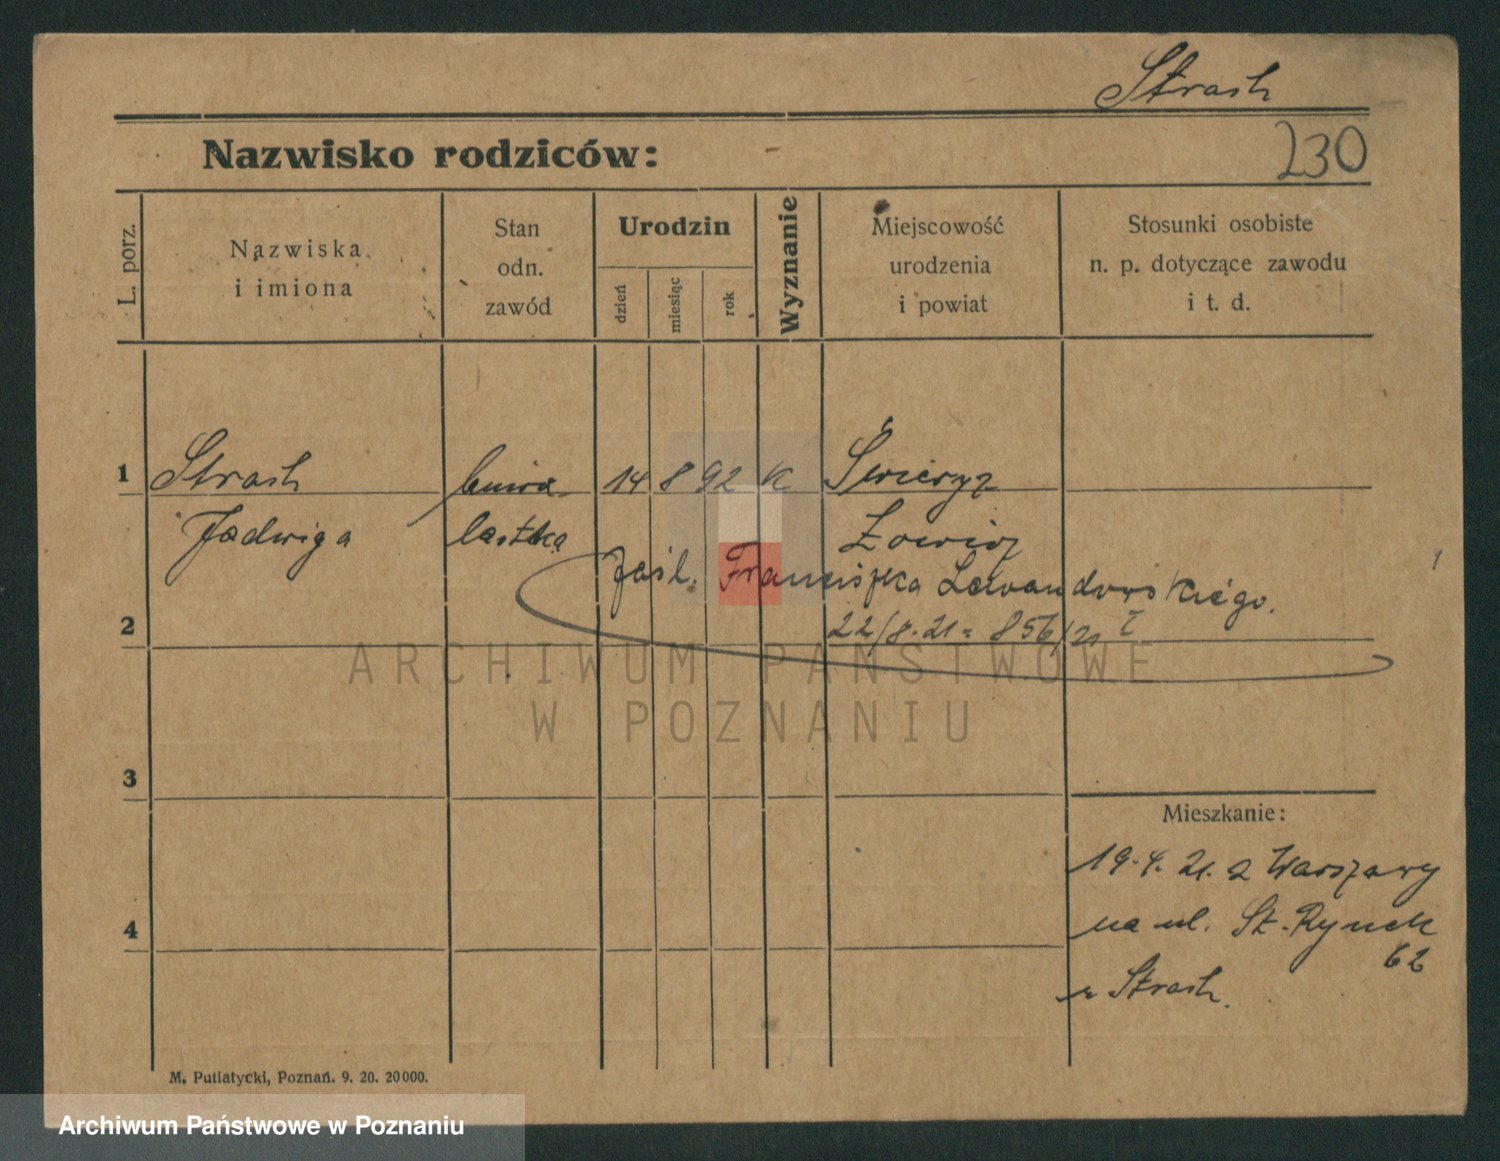 Strach
Nazwisko rodziców:
230
L. porz.
Nazwiska
i imiona
Stan
odn.
zawód
Urodzin
dzień
miesiąc
rok
Wyznanie
Miejscowość
urodzenia
i powiat
Stosunki osobiste
n. p. dotyczące zawodu
i t. d.
1 Strach 14 8 92 K Świeryz
Jadwiga Łowicz
zaśl. Franciszka Lewandowskiego.
2 22/8.21 = 856/21
ARCHIWUM PAŃSTWOWE
W POZNANIU
3
Mieszkanie:
19.4.21. z Warszawy
4 na ul. St. Rynek
62
u Strach.
M. Putiatycki, Poznań. 9. 20. 20000.
Archiwum Państwowe w Poznaniu